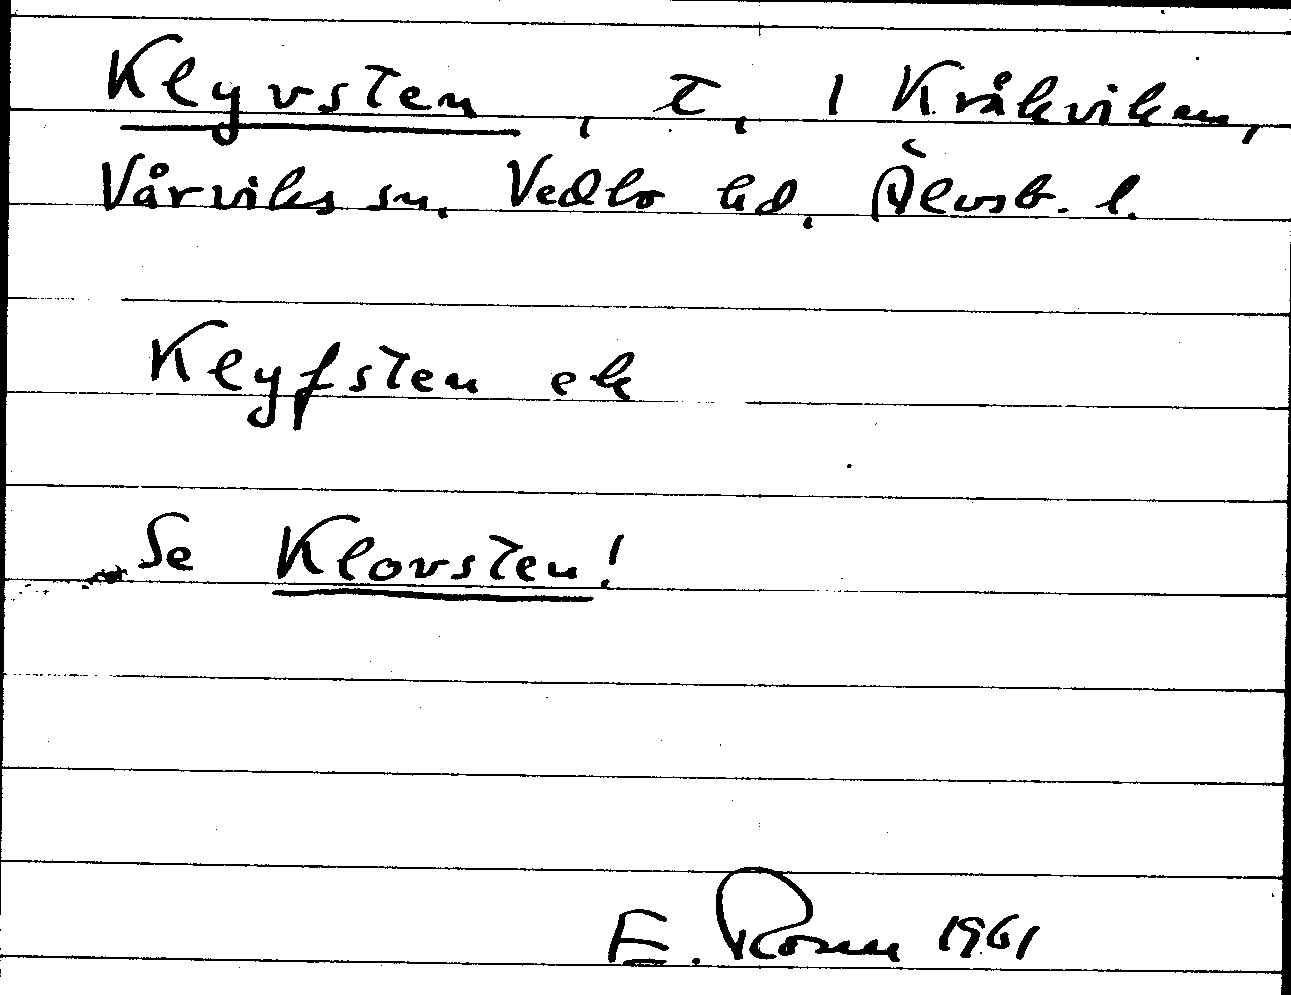 Klyvsten, t, 1 Kråkviken,
Vårviks sn. Vedbo hd. Älvsb. l.
Klyfsten ek
Se Klovsten!
E. 1961